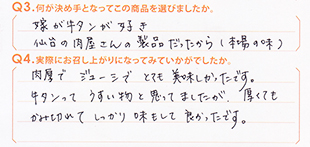 Q3.何が決め手となってこの商品を選びましたか。
嫁が牛タンが好き
仙台の肉屋さんの製品だったから(本場の味)
Q4.実際にお召し上がりになってみていかがでしたか。
肉厚でジューシーでとても美味しかったです。
牛タンってうすい物と思ってましたが、厚くても
かみ切れてしっかり味もして良かったです。